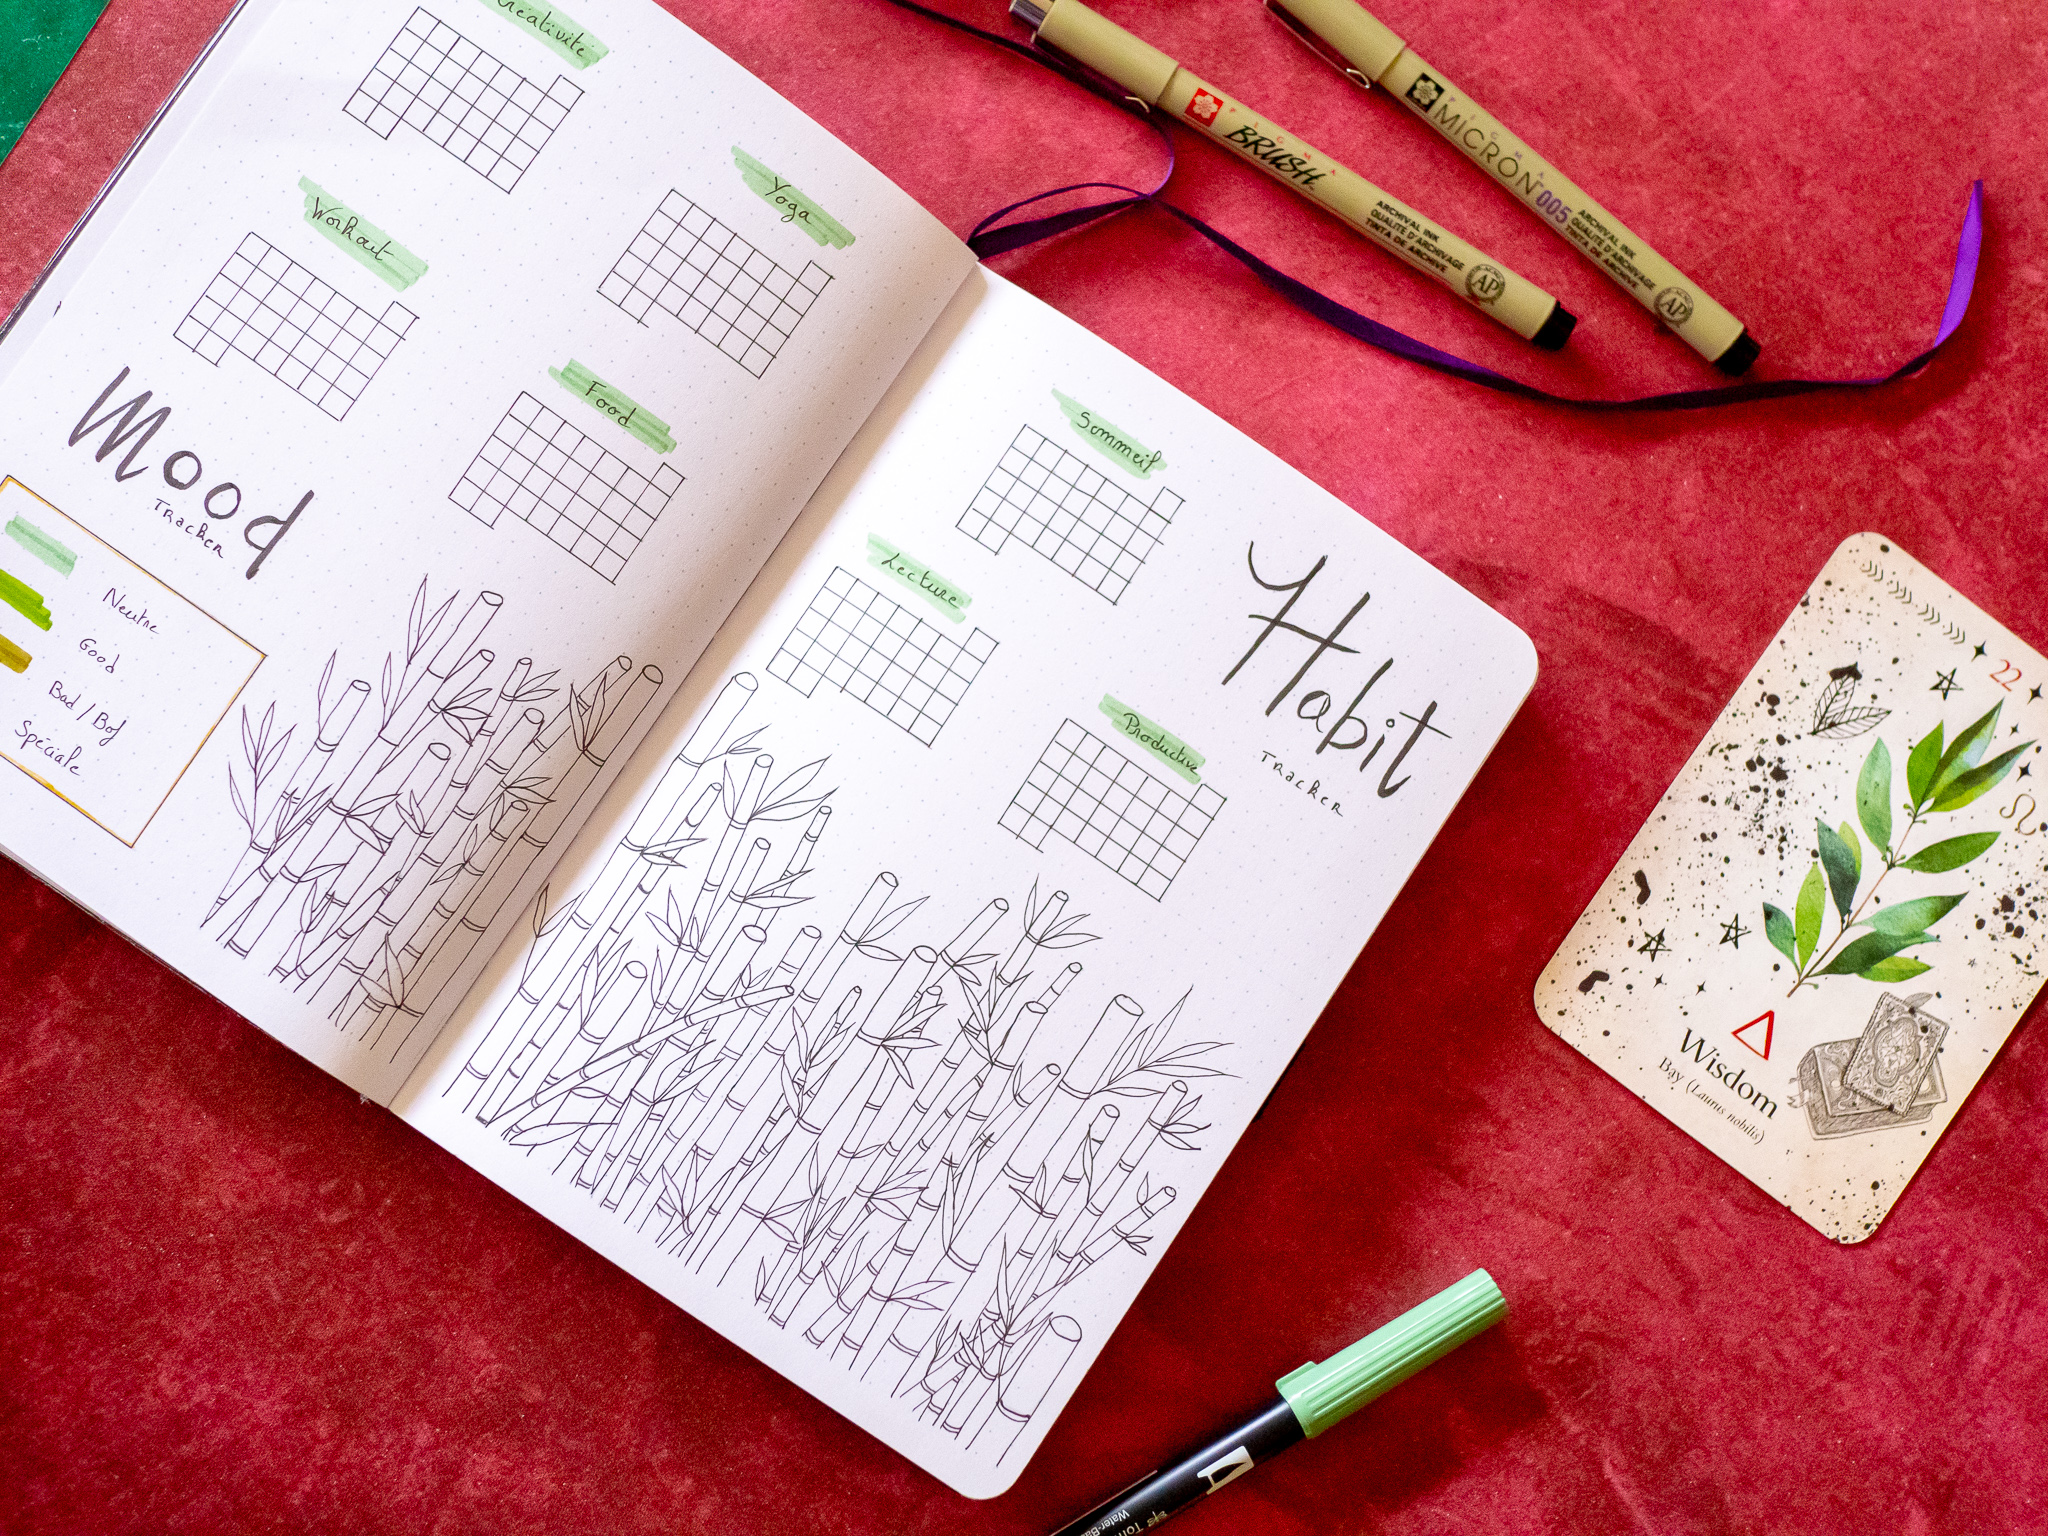 Créativité
Yoga
Workout
Food
Mood
Tracker
Neutre
Good
Bad / Bof
Spéciale
Sommeil
Lecture
Productive
Habit
Tracker
PIGMA
BRUSH
ARCHIVAL INK
QUALITÉ D'ARCHIVAGE
TINTA DE ARCHIVE
AP
PIGMA
MICRON 005
ARCHIVAL INK
QUALITÉ D'ARCHIVAGE
TINTA DE ARCHIVE
AP
22
Wisdom
Bay (Laurus nobilis)